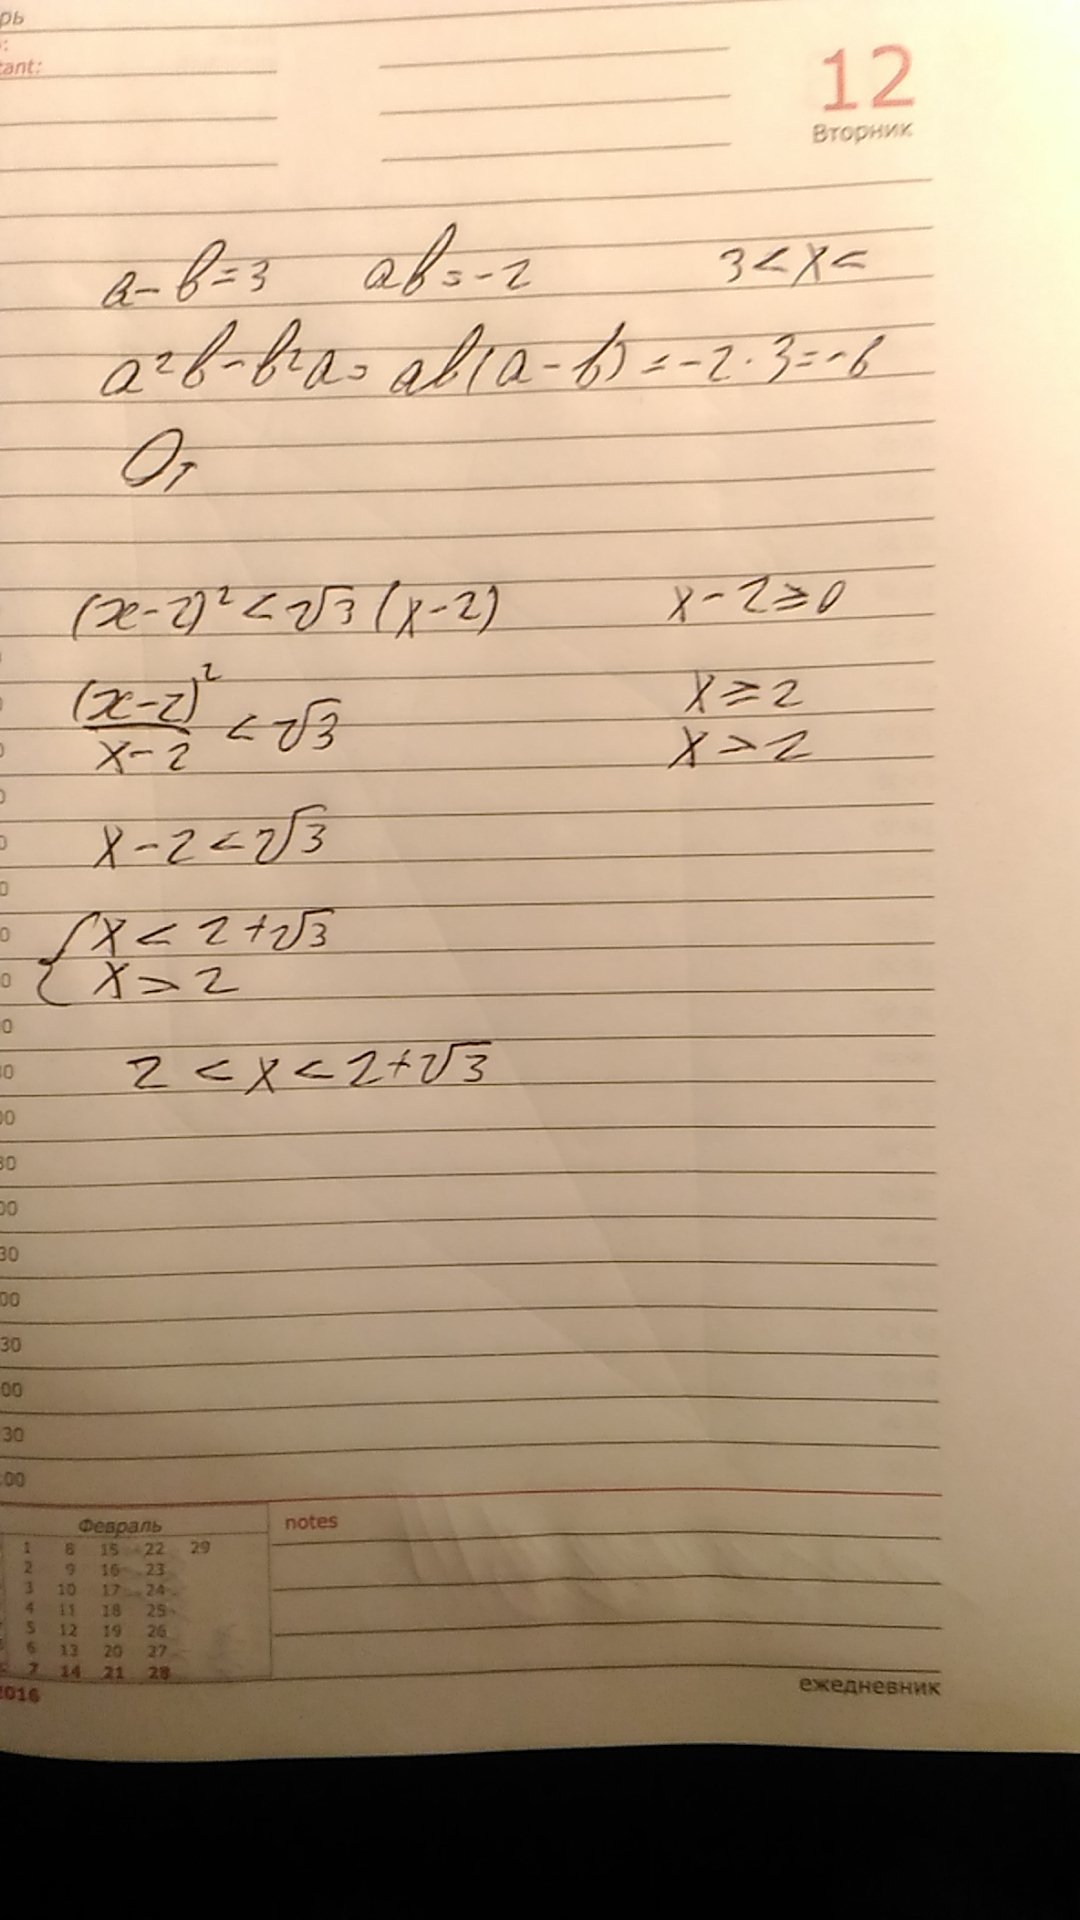 tant:
12
Вторник
a-b=3 ab=-2 3<x<
a²b-b²a= ab(a-b)=-2·3=-6
От
(x-2)²<√3(x-2) x-2≥0
(x-2)²/x-2 < √3 x≥2
x>2
x-2<√3
{x<2+√3
x>2
2<x<2+√3
30
00
30
00
30
00
30
00
Февраль notes
1 8 15 22 29
2 9 16 23
3 10 17 24
4 11 18 25
5 12 19 26
6 13 20 27
7 14 21 28
2016 ежедневник